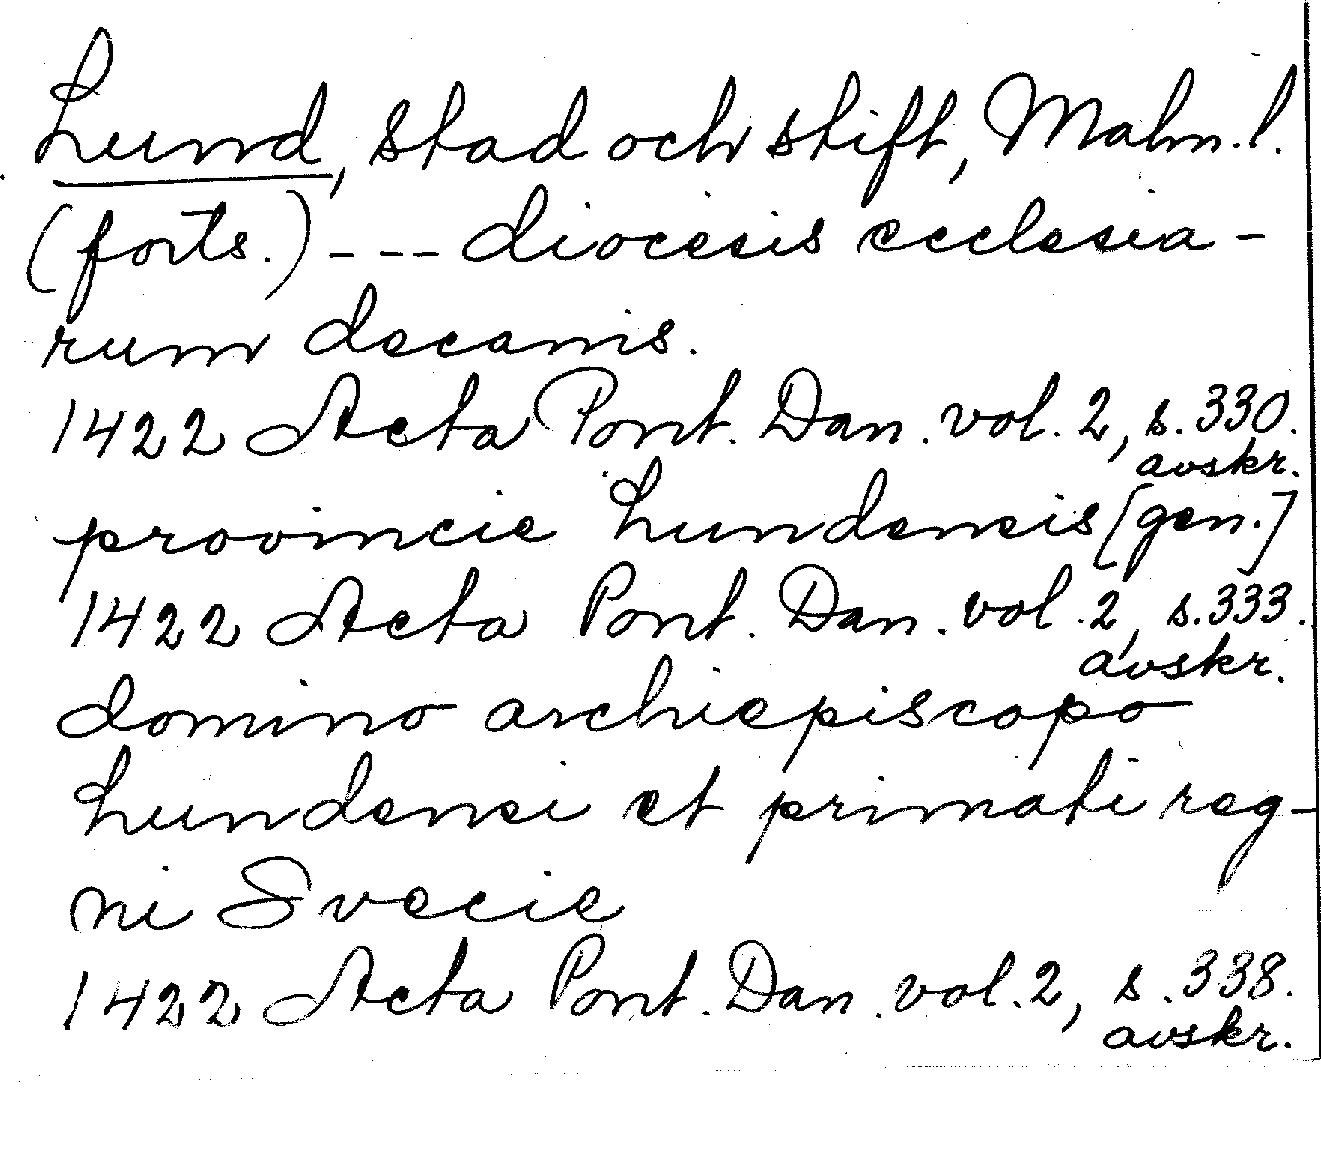 Lund, stad och stift, Malm.l.
(forts.) - --- diocesis ecclesia-
rum decanis.
1422 Acta Pont. Dan. vol. 2, s. 330.
avskr.
provincie Lundensis [gen.]
1422 Acta Pont. Dan. vol. 2, s. 333.
avskr.
domino archiepiscopo
Lundensi et primati reg-
ni Svecie
1422 Acta Pont. Dan. vol. 2, s. 338.
avskr.